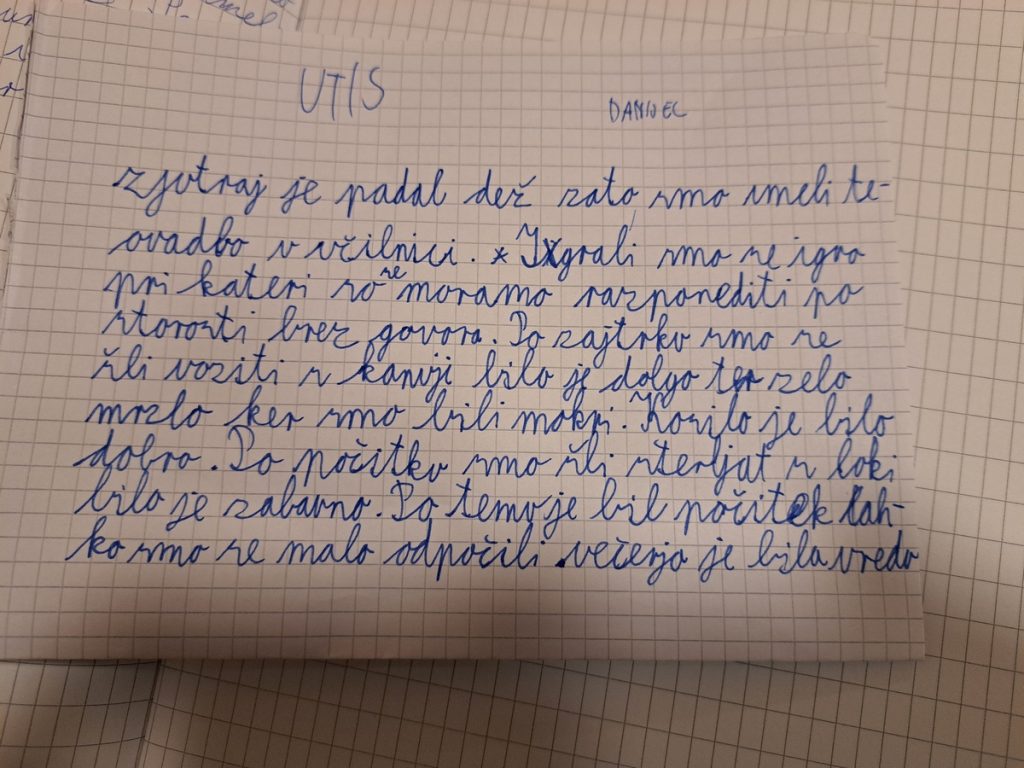 UTIS
DANIJEL
zjutraj je padal dež zato smo imeli te-
ovadbo v učilnici. * Igrali smo se igro
pri kateri so se moramo razporediti po
starosti brez govora. Po zajtrku smo se
šli voziti s kanuji bilo je dolgo ter zelo
mrzlo ker smo bili mokri. Kosilo je bilo
dobro. Po počitku smo šli streljat z loki
bilo je zabavno. Po temu je bil počitek lah-
ko smo se malo odpočili. večerja je bila vredu